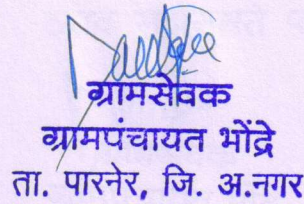 ग्रामसेवक
ग्रामपंचायत भोंद्रे
ता. पारनेर, जि. अ.नगर